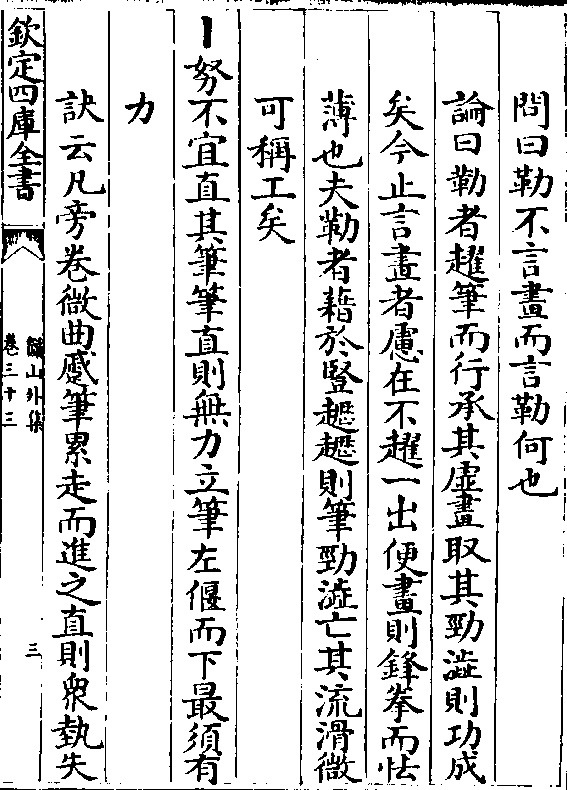 問曰勒不言畫而言勒何也
論曰勒者趯筆而行承其虛畫取其勁澁則功成
矣今止言畫者慮在不趯一出便畫則鋒拳而怯
薄也夫勒者藉於豎趯趯則筆勁澁亡其流滑微
可稱工矣
丨努不宜直其筆筆直則無力立筆左偃而下最須有
力
訣云凡旁卷微曲蹙筆累走而進之直則衆埶失
欽定四庫全書
山外集
卷三十三
三